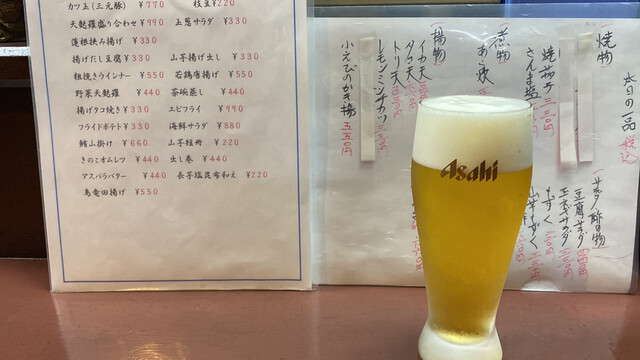 カツ玉(三元豚) ￥770 枝豆￥220
天麩羅盛り合わせ ￥990 玉葱サラダ ￥330
蓮根挟み揚げ ￥330
揚げだし豆腐 ￥330 山芋揚げ出し ￥330
粗挽きウインナー ￥550 若鶏唐揚げ ￥550
野菜天麩羅 ￥440 茶碗蒸し ￥440
揚げタコ焼き ￥330 エビフライ ￥990
フライドポテト ￥330 海鮮サラダ ￥880
鮪山掛け ￥660 山芋短冊 ￥220
きのこオムレツ ￥440 出し巻 ￥440
アスパラバター ￥440 長芋塩昆布和え ￥220
鳥竜田揚げ ￥550
本日の一品
焼物
焼茄子 330円
さんま塩
煮物
揚物
イカ天
タコ天
トリ天
レモンミンチカツ
小えびのかき揚 550円
サラダ 酢の物
豆腐サラダ
玉ネギサラダ
もずく
山芋もずく
Asahi